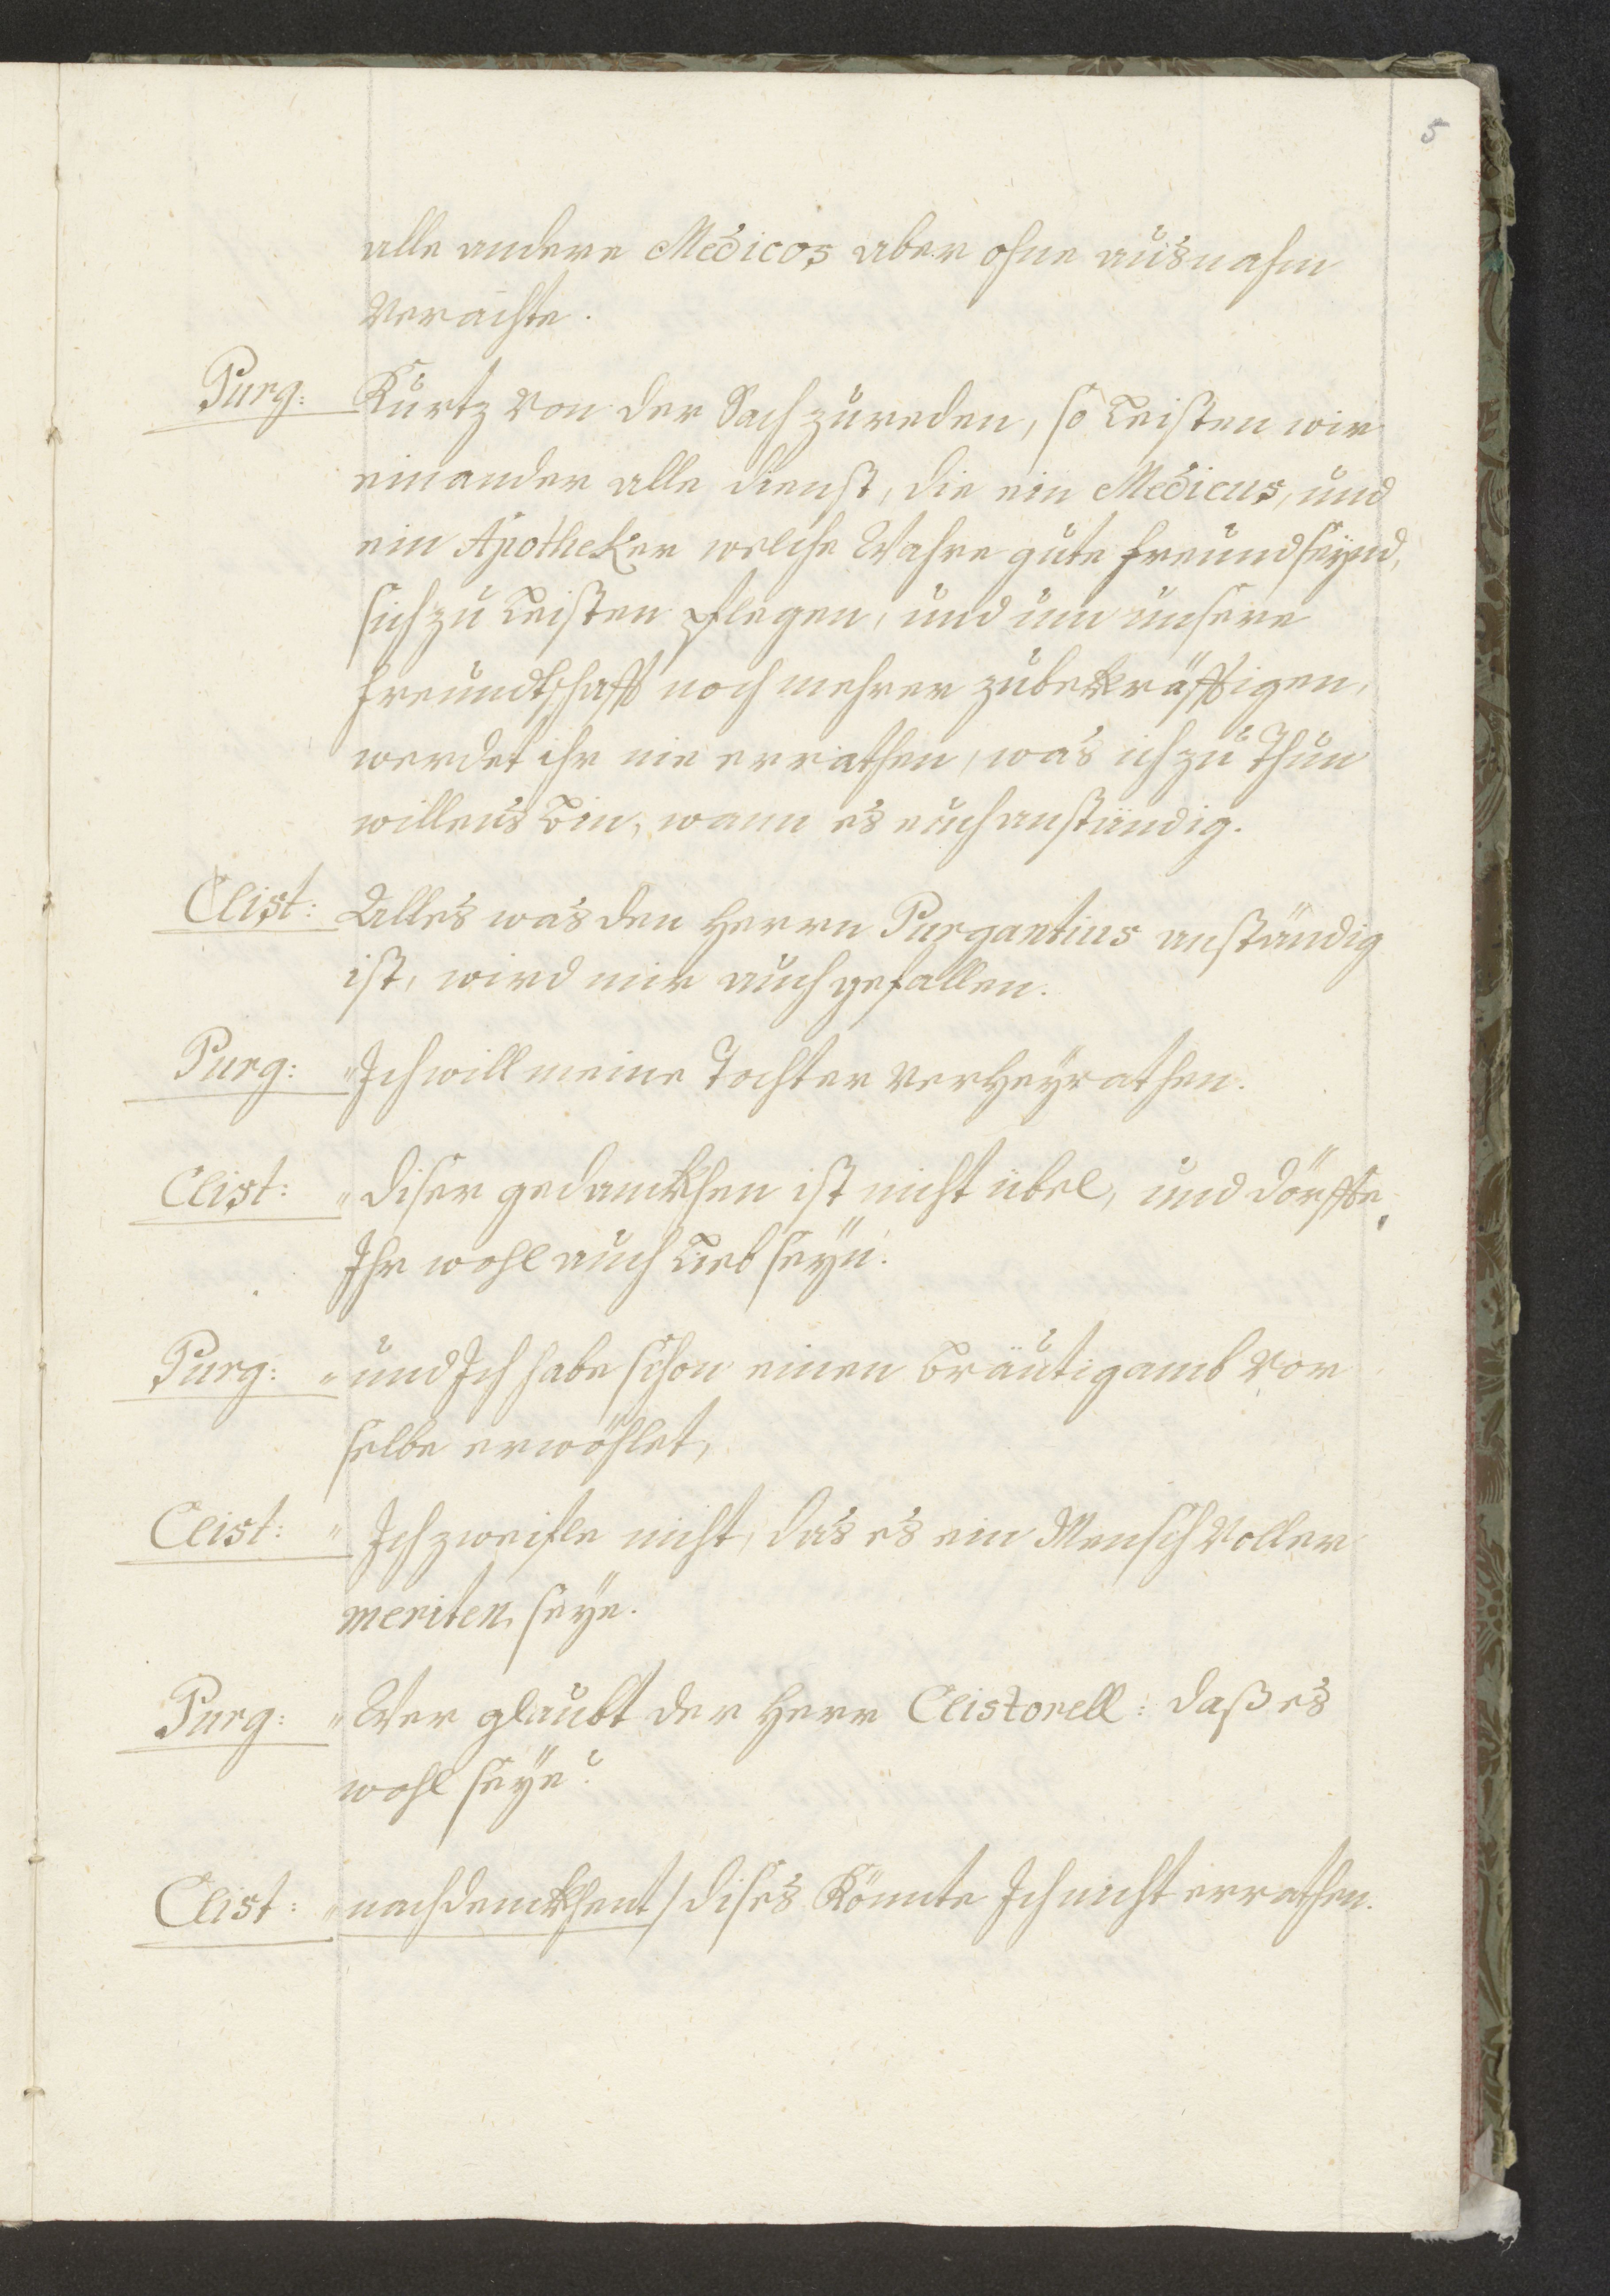 5
alle andere Medicos aber ohne ausnahm
verachte.
Purg: Kurtz von der Sach zureden, so Leisten wir
einander alle dienst, die ein Medicus, und
ein Apotheker welche Wahre gute freund seynd,
sich zu Leisten pflegen, und um unsere
freundtschafft noch mehrer zubekräfftigen,
werdet ihr nie errathen, was ich zu thun
willens bin, wann es euch anständig.
Clist: Alles was den Herrn Purgantius anständig
ist, wird mir auch gefallen.
Purg: „Ich will meine Tochter verheyrathen.
Clist: „diser gedanckhen ist nicht übel, und dörffte
Ihr wohl auch Lieb seyn.
Purg: „und Ich habe schon einen bräutigamb vor
selbe erwöhlet,
Clist: „Ich zweifle nicht, das es ein Mensch voller
meriten seye.
Purg: „Wer glaubt der Herr Clistorell: daß es
wohl seye?
Clist: „nachdenckhent / dises Könnte Ich nicht errathen.